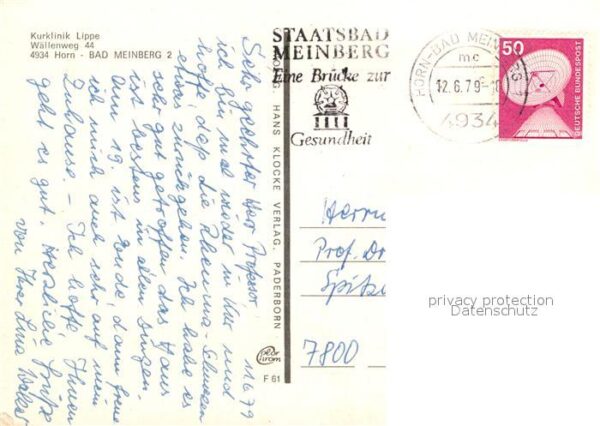 Kurklinik Lippe
Wällenweg 44
4934 Horn - BAD MEINBERG 2
STAATSBAD
MEINBERG
Eine Brücke zur
Gesundheit
HORN-BAD MEINBERG
mc
12.6.79
4934
50
DEUTSCHE BUNDESPOST
HANS KLOCKE VERLAG, PADERBORN
F 61
11.6.79
Sehr geehrter Herr Professor
ich bin mal wieder in Kur und
hoffe daß die Rheuma-Schmerzen
etwas zurückgehen. Ich habe es
sehr gut getroffen das Haus
ist bestens in allen Dingen.
Am 19. ist Ende, dann freue
ich mich auch sehr auf mein
Zuhause. - Ich hoffe Ihnen
geht es gut. Herzliche Grüße
von Ihrer Lina
Herrn
Prof. Dr
Spitz
7800
privacy protection
Datenschutz